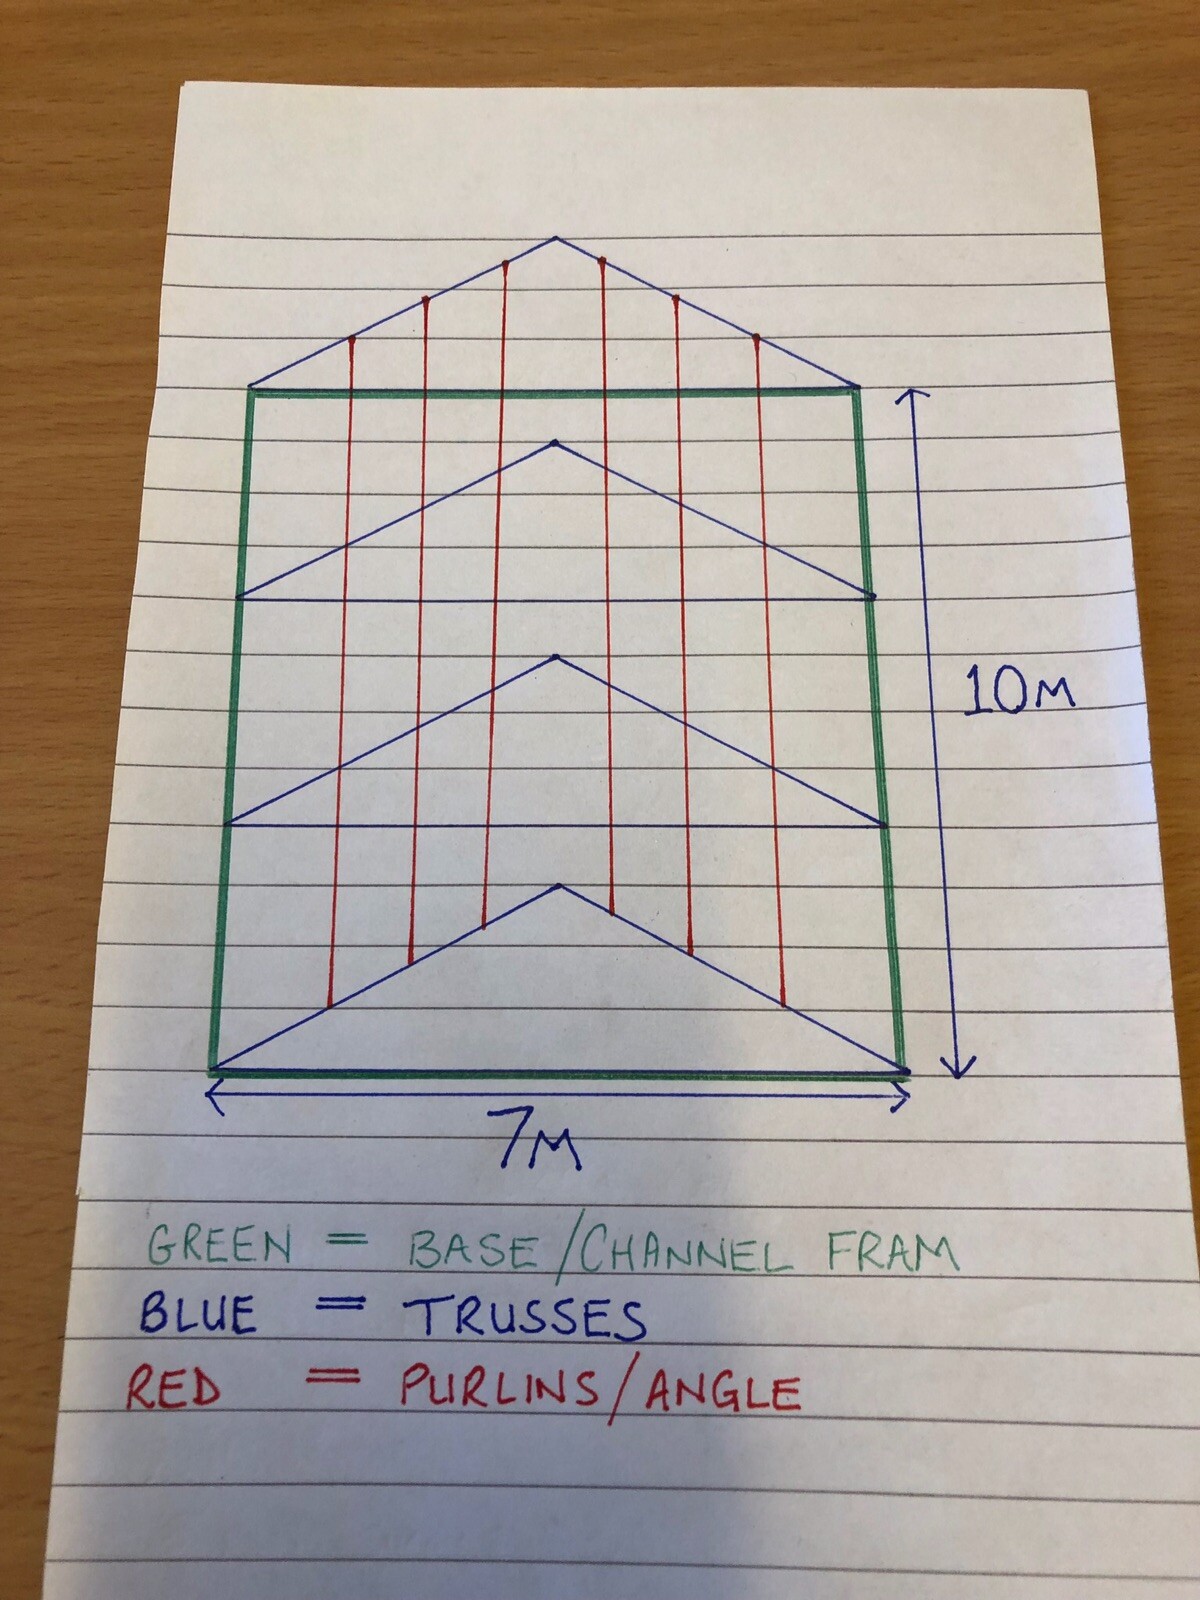 10M
7M
GREEN = BASE/CHANNEL FRAM
BLUE = TRUSSES
RED = PURLINS/ANGLE